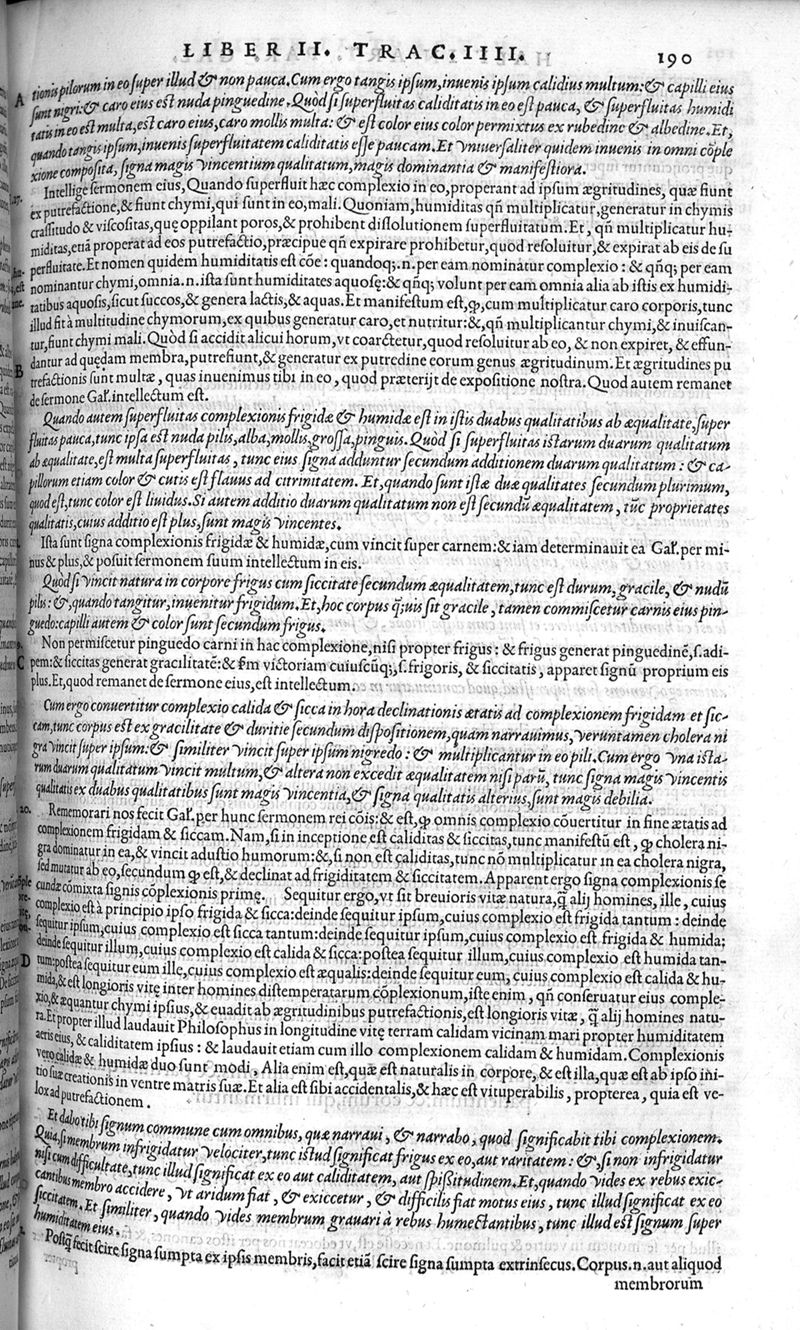 LIBER II. TRAC. IIII. 190
A tionis pilorum in eo super illud & non pauca. Cum ergo tangis ipsum, inuenis ipsum calidius multum: & capilli eius
sunt nigri: & caro eius est nuda pinguedine. Quòd si superfluitas caliditatis in eo est pauca, & superfluitas humidi
tatis in eo est multa, est caro eius, caro mollis multa: & est color eius color permixtus ex rubedine & albedine. Et,
quando tangis ipsum, inuenis superfluitatem caliditatis esse paucam. Et vniuersaliter quidem inuenis in omni cõple
xione composita, signa magis vincentium qualitatum, magis dominantia & manifestiora.
Intellige sermonem eius, Quando superfluit hæc complexio in eo, properant ad ipsum ægritudines, quæ fiunt
ex putrefactione, & fiunt chymi, qui sunt in eo, mali. Quoniam, humiditas qñ multiplicatur, generatur in chymis
crassitudo & viscositas, quę oppilant poros, & prohibent dissolutionem superfluitatum. Et, qñ multiplicatur hu-
miditas, etiã properat ad eos putrefactio, præcipue qñ expirare prohibetur, quod resoluitur, & expirat ab eis de su
perfluitate. Et nomen quidem humiditatis est cõe: quandoq;. n. per eam nominatur complexio: & qñq; per eam
nominantur chymi, omnia. n. ista sunt humiditates aquosę: & qñq; volunt per eam omnia alia ab istis ex humidi-
tatibus aquosis, sicut succos, & genera lactis, & aquas. Et manifestum est, ꝙ, cum multiplicatur caro corporis, tunc
illud fit à multitudine chymorum, ex quibus generatur caro, et nutritur: &, qñ multiplicantur chymi, & inuiscan-
tur, fiunt chymi mali. Quòd si accidit alicui horum, vt coarctetur, quod resoluitur ab eo, & non expiret, & effun-
B dantur ad quędam membra, putrefiunt, & generatur ex putredine eorum genus ægritudinum. Et ægritudines pu
trefactionis sunt multæ, quas inuenimus tibi in eo, quod præterijt de expositione nostra. Quod autem remanet
de sermone Gal. intellectum est.
Quando autem superfluitas complexionis frigidæ & humidæ est in istis duabus qualitatibus ab æqualitate, super
fluitas pauca, tunc ipsa est nuda pilis, alba, mollis, grossa, pinguis. Quòd si superfluitas istarum duarum qualitatum
ab æqualitate, est multa superfluitas, tunc eius signa adduntur secundum additionem duarum qualitatum: & ca-
pillorum etiam color & cutis est flauus ad citrinitatem. Et, quando sunt istæ duæ qualitates secundum plurimum,
quod est, tunc color est liuidus. Si autem additio duarum qualitatum non est secundũ æqualitatem, tũc proprietates
qualitatis, cuius additio est plus, sunt magis vincentes.
Ista sunt signa complexionis frigidæ & humidæ, cum vincit super carnem: & iam determinauit ea Gal. per mi-
nus & plus, & posuit sermonem suum intellectum in eis.
Quòd si vincit natura in corpore frigus cum siccitate secundum æqualitatem, tunc est durum, gracile, & nudũ
pilis: &, quando tangitur, inuenitur frigidum. Et, hoc corpus q̃;uis sit gracile, tamen commiscetur carnis eius pin-
guedo: capilli autem & color sunt secundum frigus.
Non permiscetur pinguedo carni in hac complexione, nisi propter frigus: & frigus generat pinguedinẽ, s. adi-
C pem: & siccitas generat gracilitatẽ: & ſm victoriam cuiuscũq;, s. frigoris, & siccitatis, apparet signũ proprium eis
plus. Et, quod remanet de sermone eius, est intellectum.
Cum ergo conuertitur complexio calida & sicca in hora declinationis ætatis ad complexionem frigidam et sic-
cam, tunc corpus est ex gracilitate & duritie secundum dispositionem, quam narrauimus, veruntamen cholera ni
gra vincit super ipsum: & similiter vincit super ipsum nigredo: & multiplicantur in eo pili. Cum ergo vna ista-
rum duarum qualitatum vincit multum, & altera non excedit æqualitatem nisi parũ, tunc signa magis vincentis
qualitatis ex duabus qualitatibus sunt magis vincentia, & signa qualitatis alterius, sunt magis debilia.
20. Rememorari nos fecit Gal. per hunc sermonem rei cõis: & est, ꝙ omnis complexio cõuertitur in fine ætatis ad
complexionem frigidam & siccam. Nam, si in inceptione est caliditas & siccitas, tunc manifestũ est, ꝙ cholera ni-
gra dominatur in ea, & vincit adustio humorum: &, si non est caliditas, tunc nõ multiplicatur in ea cholera nigra,
sed mutatur ab eo, secundum ꝙ est, & declinat ad frigiditatem & siccitatem. Apparent ergo signa complexionis se
cundæ cõmixta signis cõplexionis primę. Sequitur ergo, vt sit breuioris vitæ natura, q̃ alij homines, ille, cuius
complexio est à principio ipso frigida & sicca: deinde sequitur ipsum, cuius complexio est frigida tantum: deinde
sequitur ipsum, cuius complexio est sicca tantum: deinde sequitur ipsum, cuius complexio est frigida & humida;
deinde sequitur illum, cuius complexio est calida & sicca: postea sequitur illum, cuius complexio est humida tan-
D tum: postea sequitur eum ille, cuius complexio est æqualis: deinde sequitur eum, cuius complexio est calida & hu-
mida, & est longioris vitę inter homines distemperatarum cõplexionum, iste enim, qñ conseruatur eius comple-
xio, & æquantur chymi ipsius, & euadit ab ægritudinibus putrefactionis, est longioris vitæ, q̃ alij homines natu-
ra. Et propter illud laudauit Philosophus in longitudine vitę terram calidam vicinam mari propter humiditatem
aeris eius, & caliditatem ipsius: & laudauit etiam cum illo complexionem calidam & humidam. Complexionis
vero calidæ & humidæ duo sunt modi, Alia enim est, quæ est naturalis in corpore, & est illa, quæ est ab ipso ini-
tio suæ creationis in ventre matris suæ. Et alia est sibi accidentalis, & hæc est vituperabilis, propterea, quia est ve-
lox ad putrefactionem.
Et dabo tibi signum commune cum omnibus, quæ narraui, & narrabo, quod significabit tibi complexionem.
Quia, si membrum infrigidatur velociter, tunc istud significat frigus ex eo, aut raritatem: &, si non infrigidatur
nisi cum difficultate, tunc illud significat ex eo aut caliditatem, aut spissitudinem. Et, quando vides ex rebus exic-
cantibus membro accidere, vt aridum fiat, & exiccetur, & difficilis fiat motus eius, tunc illud significat ex eo
siccitatem. Et similiter, quando vides membrum grauari à rebus humectantibus, tunc illud est signum super
humiditatem eius.
Postq̃ fecit scire signa sumpta ex ipsis membris, facit etiã scire signa sumpta extrinsecus. Corpus. n. aut aliquod
membrorum